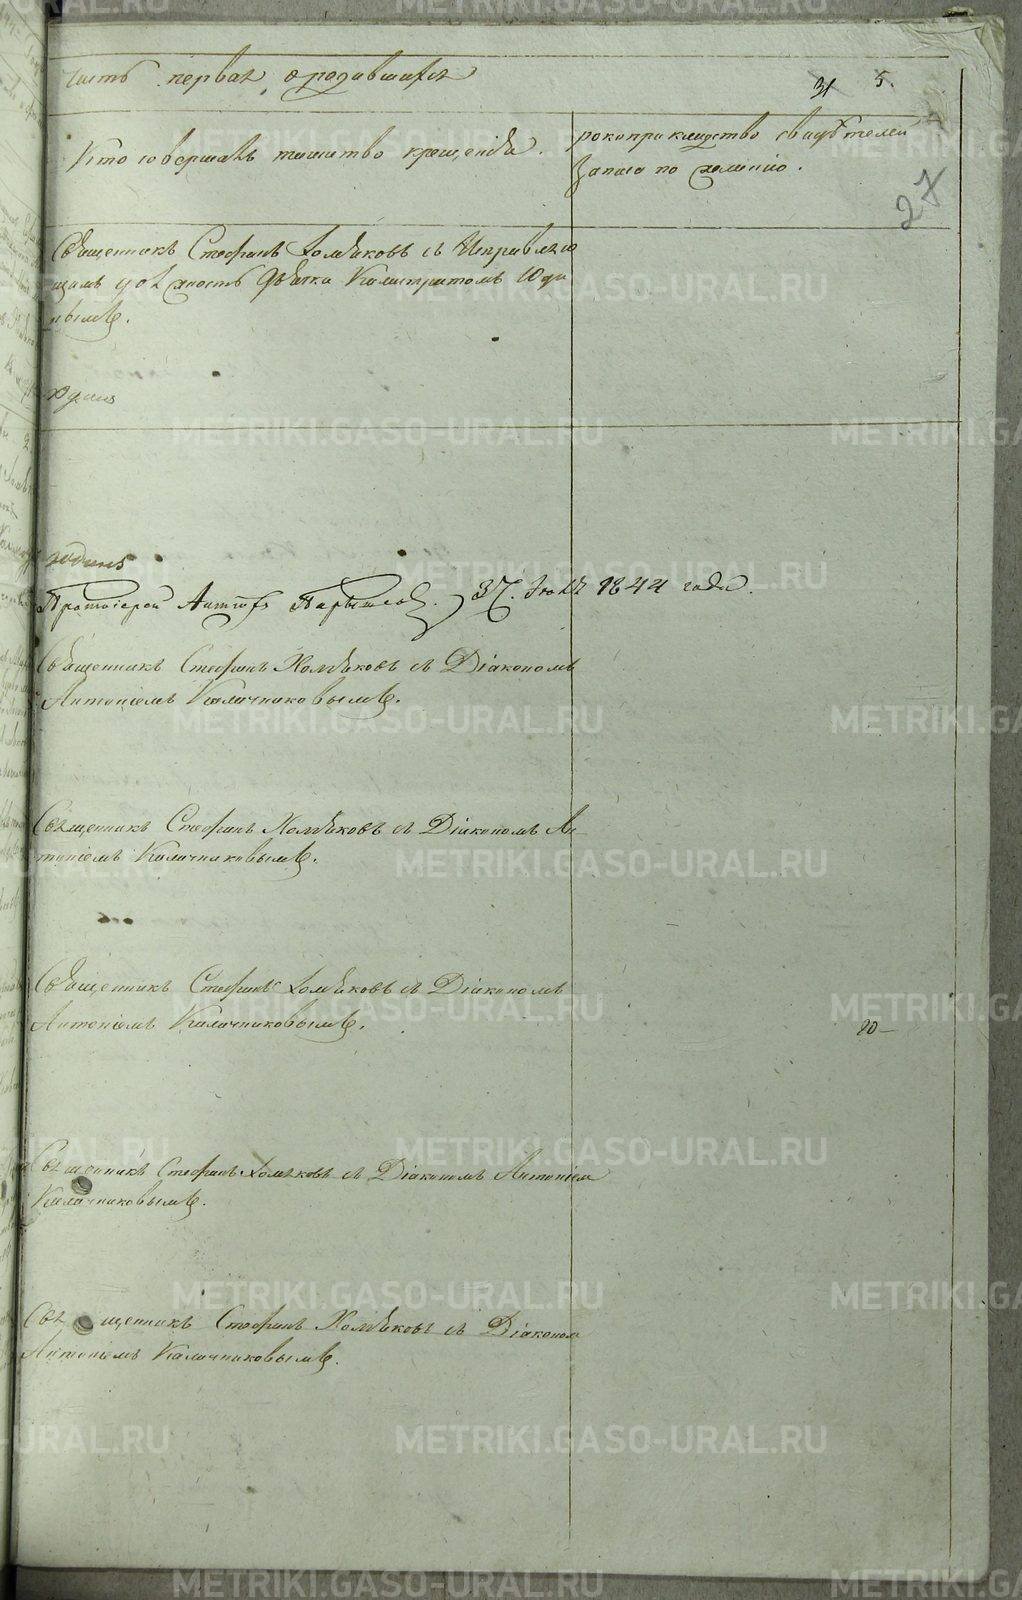 часть первая о родившихся
31 5.
Кто совершалъ таинство крещенія.
рукоприкладство свидѣтелей
записи по желанію.
27
Священникъ Стефанъ Хомяковъ съ Исправляю
щимъ должность Дьячка Калистратомъ Юди
нымъ.
одинъ
одинъ
Протоіерей 27. Іюля 1844 года.
Священникъ Стефанъ Хомяковъ съ Діакономъ
Антоніемъ Калачниковымъ.
Священникъ Стефанъ Хомяковъ съ Діакономъ Ан
тоніемъ Калачниковымъ.
Священникъ Стефанъ Хомяковъ съ Діакономъ
Антоніемъ Калачниковымъ.
20-
Священникъ Стефанъ Хомяковъ съ Діакономъ Антоніем
Калачниковымъ.
Священникъ Стефанъ Хомяковъ съ Діаконом
Антоніемъ Калачниковымъ.